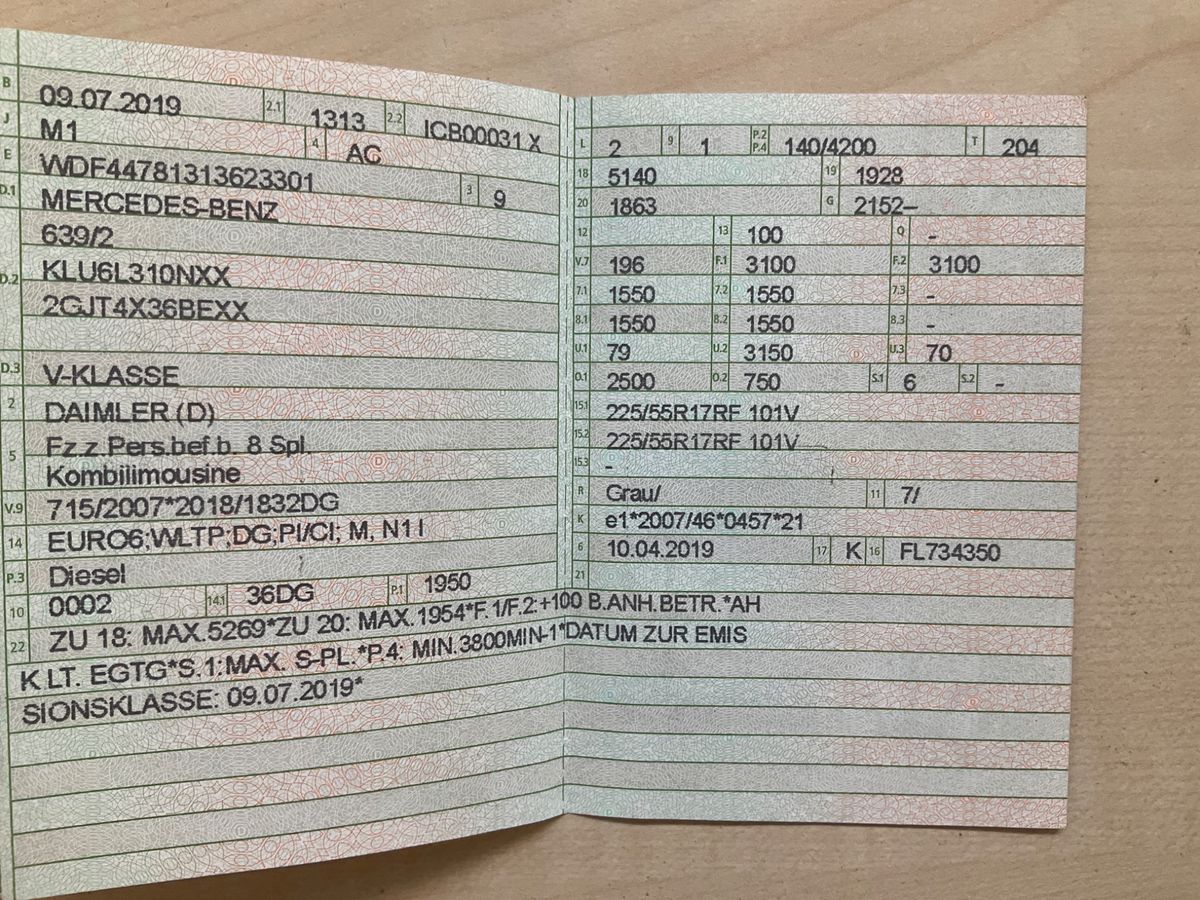 B 09.07.2019 2.1 1313 2.2 ICB00031 X
J M1 4 AC
E WDF44781313623301 3 9
D.1 MERCEDES-BENZ
639/2
D.2 KLU6L310NXX
2GJT4X36BEXX
D.3 V-KLASSE
2 DAIMLER (D)
5 Fz.z.Pers.bef.b. 8 Spl.
Kombilimousine
V.9 715/2007*2018/1832DG
14 EURO6;WLTP;DG;PI/CI; M, N1 I
P.3 Diesel
10 0002 14.1 36DG P.1 1950
L 2 9 1 P.2 P.4 140/4200 T 204
18 5140 19 1928
20 1863 G 2152–
12 13 100 Q -
V.7 196 F.1 3100 F.2 3100
7.1 1550 7.2 1550 7.3 -
8.1 1550 8.2 1550 8.3 -
U.1 79 U.2 3150 U.3 70
O.1 2500 O.2 750 S.1 6 S.2 -
15.1 225/55R17RF 101V
15.2 225/55R17RF 101V
15.3 -
R Grau/ 11 7/
K e1*2007/46*0457*21
6 10.04.2019 17 K 16 FL734350
21
22 ZU 18: MAX.5269*ZU 20: MAX.1954*F.1/F.2:+100 B.ANH.BETR.*AH
K LT. EGTG*S.1:MAX. S-PL.*P.4: MIN.3800MIN-1*DATUM ZUR EMIS
SIONSKLASSE: 09.07.2019*